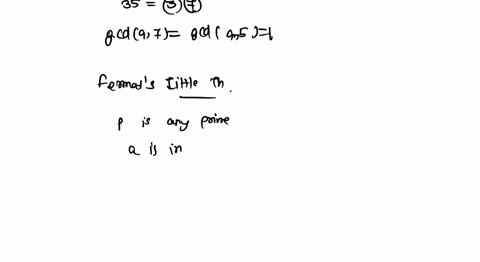 35 = (3)(7)
gcd(a, 7) = gcd(a, 5) = 1
Fermat's Little Th.
P is any prime
a is in